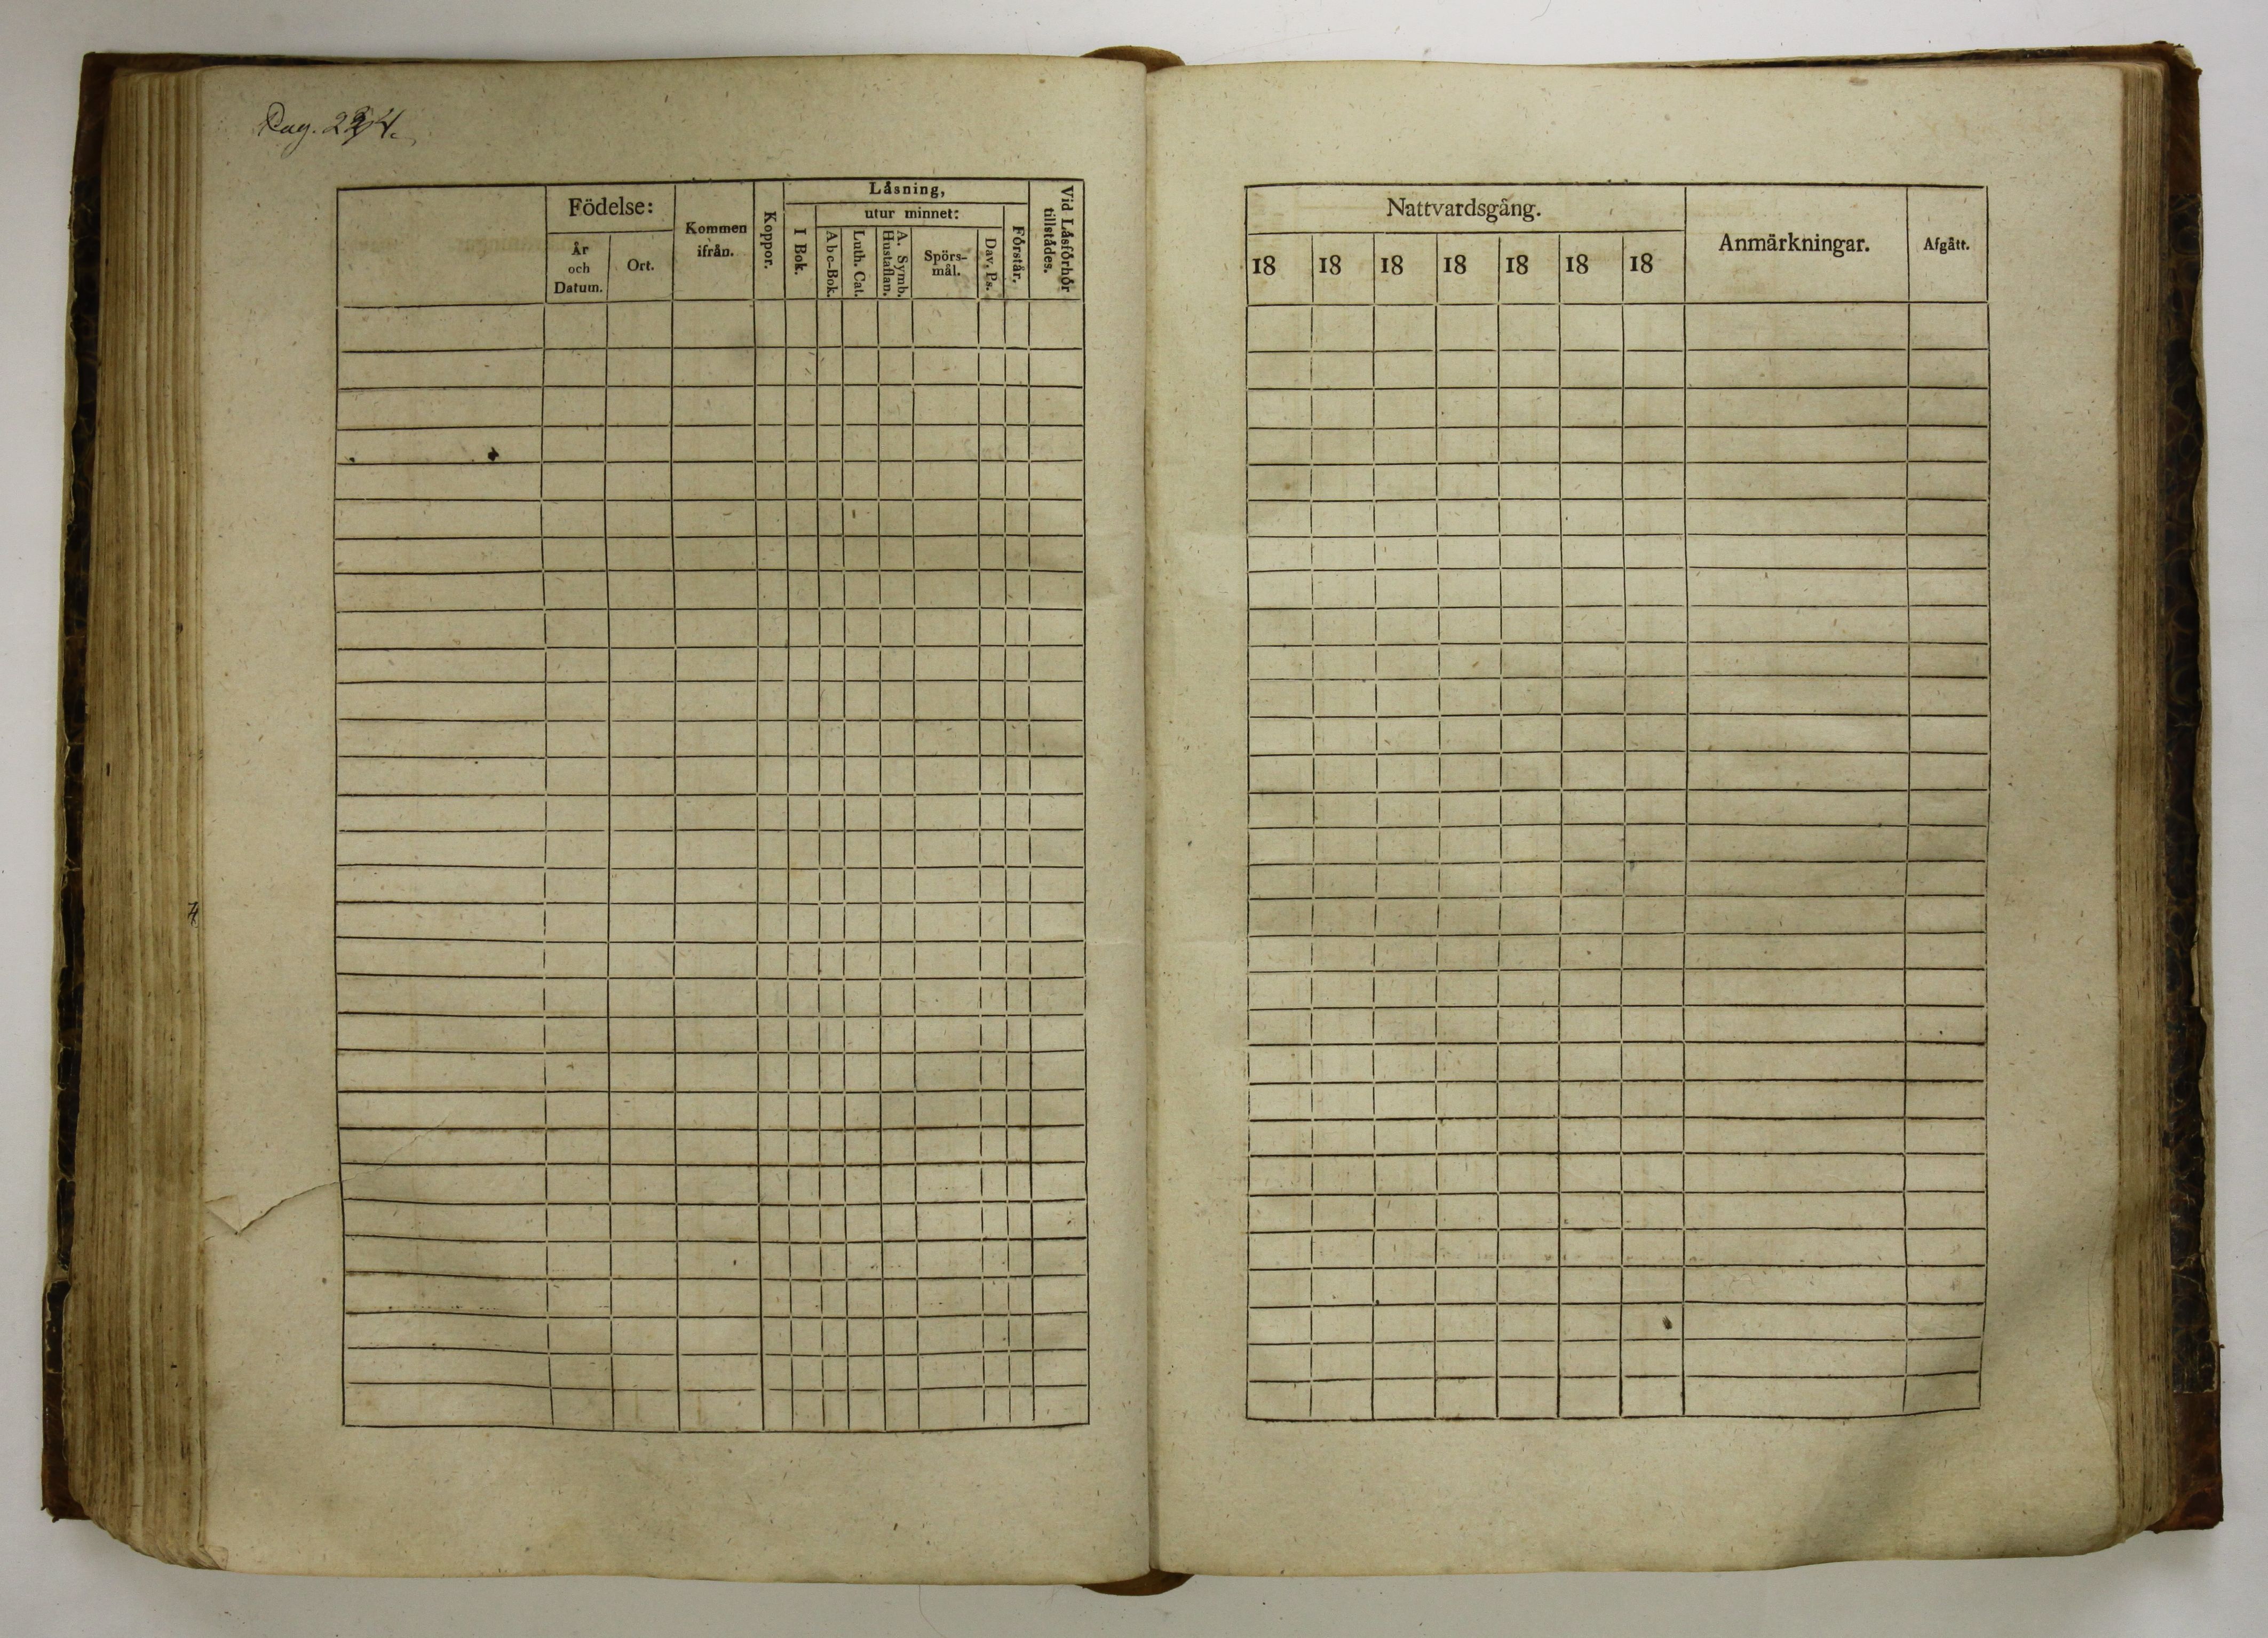 Pag. 224.
Födelse:
År
och
Datum.
Ort.
Kommen
ifrån.
Koppor.
Låsning,
I Bok.
utur minnet:
Abc-Bok.
Luth. Cat.
A. Symb.
Hustaflan.
Spörs-
mål.
Dav. Ps.
Förstår.
Vid Låsförhör
tillstådes.
Nattvardsgång.
18 18 18 18 18 18 18
Anmärkningar.
Afgått.